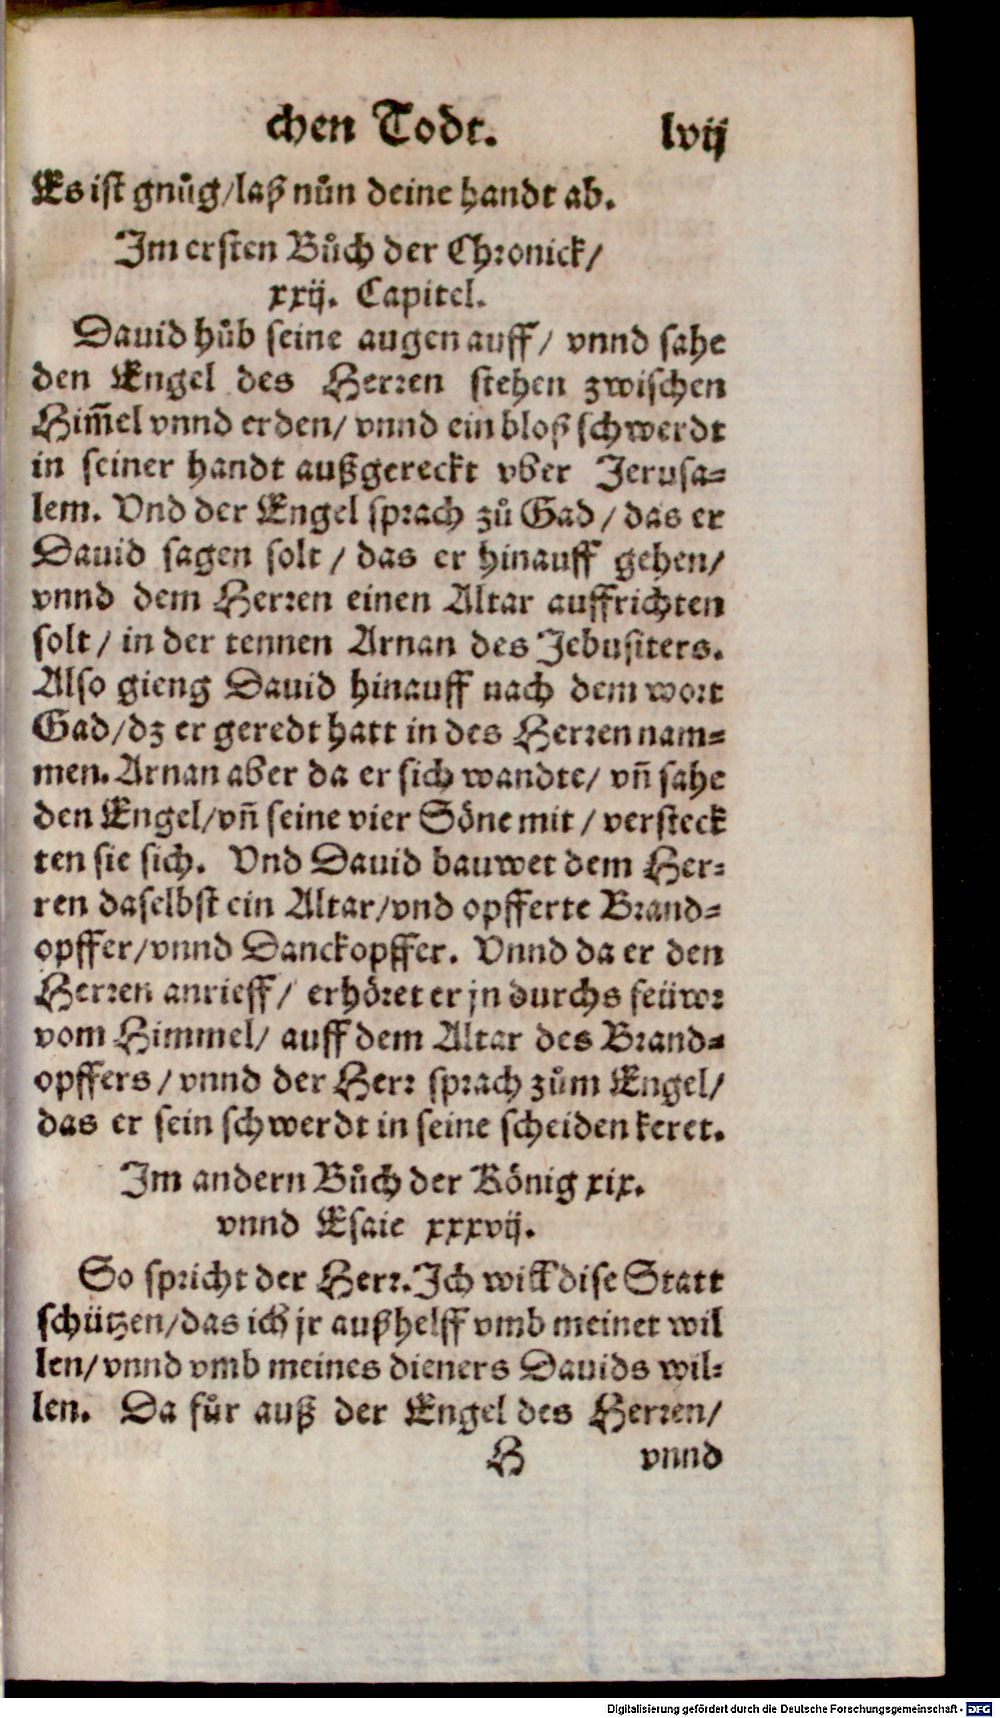 chen Todt. lvij
Es ist gnůg/laß nůn deine handt ab.
Im ersten Bůch der Chronick/
xxij. Capitel.
Dauid hůb seine augen auff/ vnnd sahe
den Engel des Herren stehen zwischen
Him̃el vnnd erden/ vnnd ein bloß schwerdt
in seiner handt außgereckt vber Jerusa=
lem. Vnd der Engel sprach zů Gad/ das er
Dauid sagen solt / das er hinauff gehen/
vnnd dem Herren einen Altar auffrichten
solt/ in der tennen Arnan des Jebusiters.
Also gieng Dauid hinauff nach dem wort
Gad/dz er geredt hatt in des Herren nam=
men. Arnan aber da er sich wandte/ vñ sahe
den Engel/vñ seine vier Söne mit / versteck
ten sie sich. Vnd Dauid bauwet dem Her=
ren daselbst ein Altar/vnd opfferte Brand=
opffer/vnnd Danckopffer. Vnnd da er den
Herren anrieff/ erhöret er jn durchs feüwr
vom Himmel/ auff dem Altar des Brand=
opffers / vnnd der Herr sprach zům Engel/
das er sein schwerdt in seine scheiden keret.
Im andern Bůch der König xix.
vnnd Esaie xxxvij.
So spricht der Herr. Ich will dise Statt
schützen/das ich jr außhelff vmb meinet wil
len/vnnd vmb meines dieners Dauids wil=
len. Da fůr auß der Engel des Herren/
H vnnd
Digitalisierung gefördert durch die Deutsche Forschungsgemeinschaft - DFG